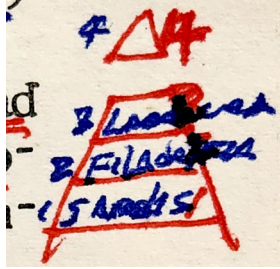 4 Δ4
ad
3 Laodicea
2 FiLAdelFIA
o-
1 SARdIS
n-